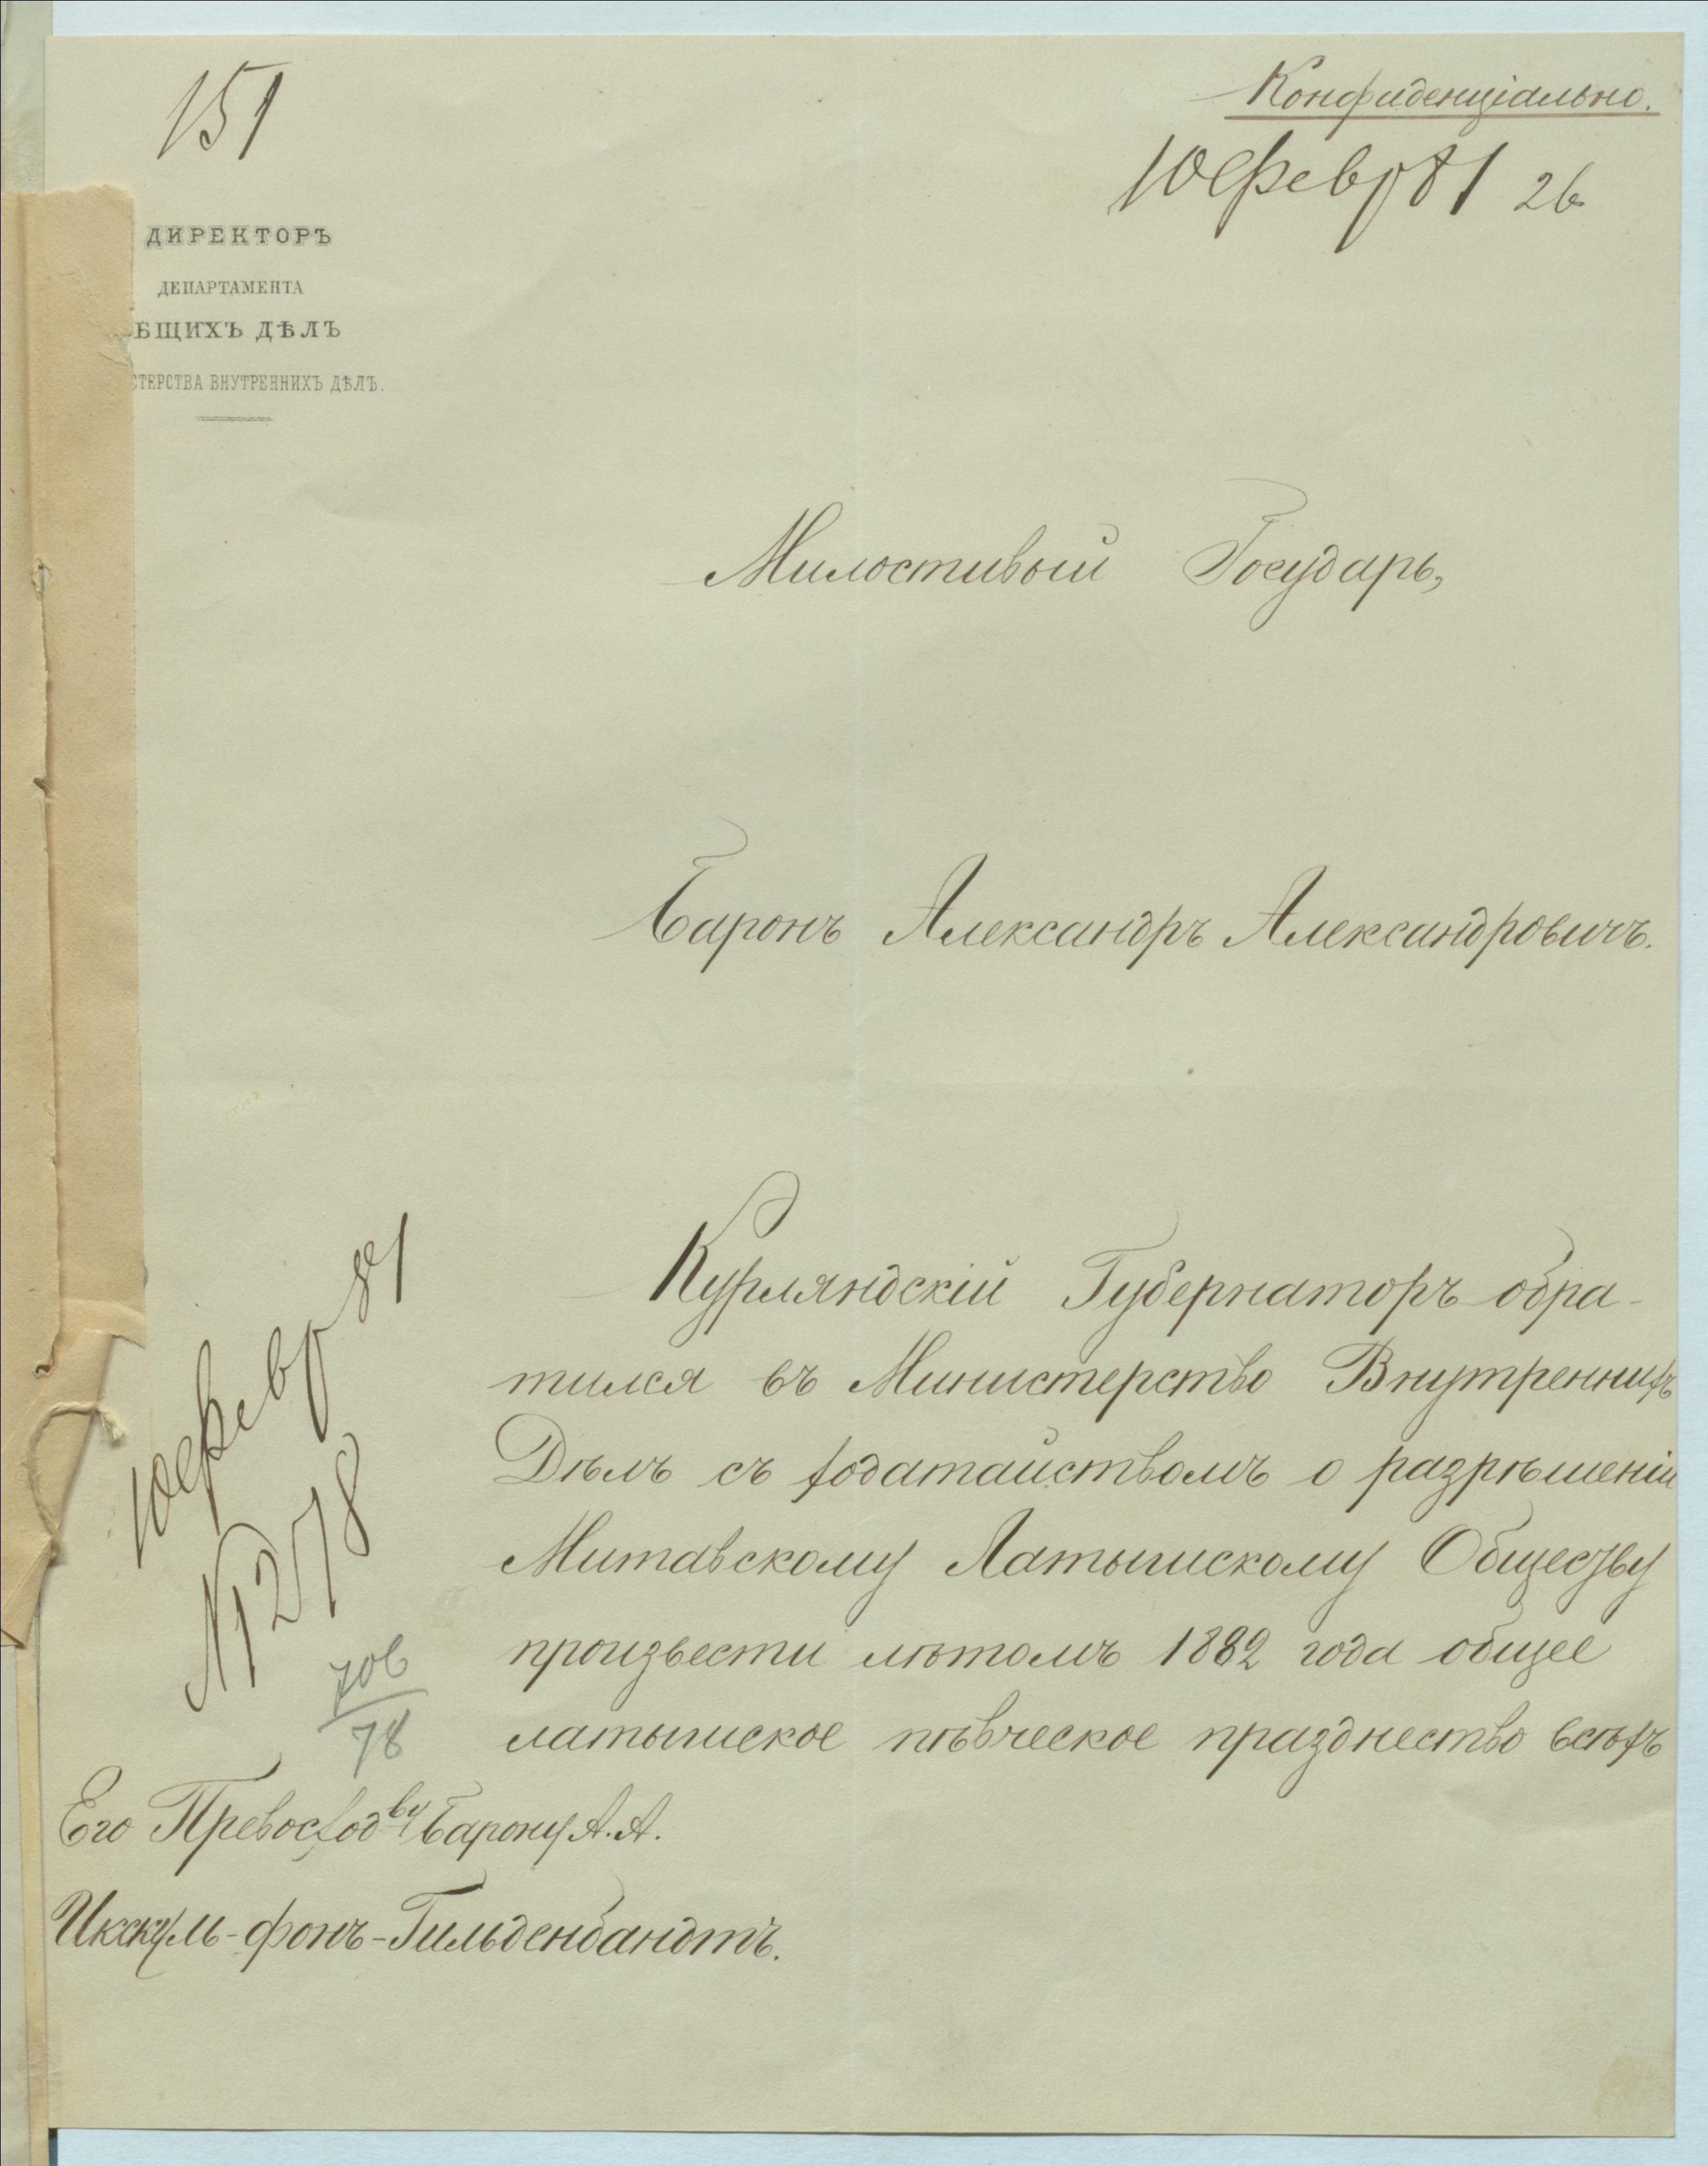 151
Конфиденціально.
10 Февр 81 26
ДИРЕКТОРЪ
ДЕПАРТАМЕНТА
БЩИХЪ ДѢЛЪ
СТЕРСТВА ВНУТРЕННИХЪ ДѢЛЪ.
Милостивый Государь,
Баронъ Александръ Александровичъ.
Курляндскій Губернаторъ обра-
тился въ Министерство Внутреннихъ
Дѣлъ съ ходатайствомъ о разрѣшеніи
Митавскому Латышскому Обществу
произвести лѣтомъ 1882 года общее
латышское пѣвческое празднество всѣхъ
10 Февр 81
№ 278
78
Его Превосходву Барону А. А.
Икскуль-фонъ-Гильденбандтъ.